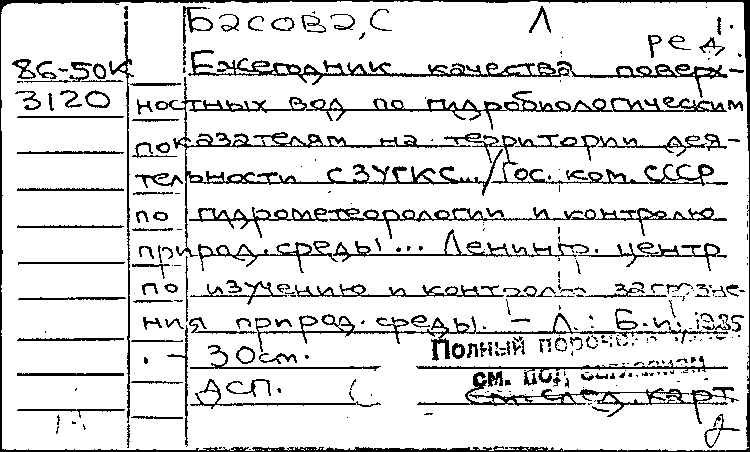 Басова, С Л
1.
ред.
86-50К Ежегодник качества поверх-
3120 ностных вод по гидробиологическим
показателям на территории дея-
тельности СЗУГКС.../Гос. ком. СССР
по гидрометеорологии и контролю
природ. среды... Ленингр. центр
по изучению и контролю загрязне-
ния природ. среды. - Л.: Б.и., 1985
. - 30см.
Полный
см. под
ДСП. (
См. след. карт
2